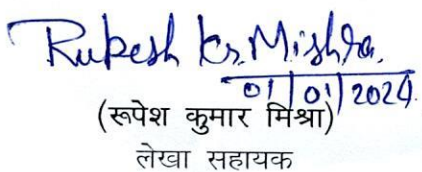 Rupesh Kr. Mishra
01/01/2024
(रूपेश कुमार मिश्रा)
लेखा सहायक